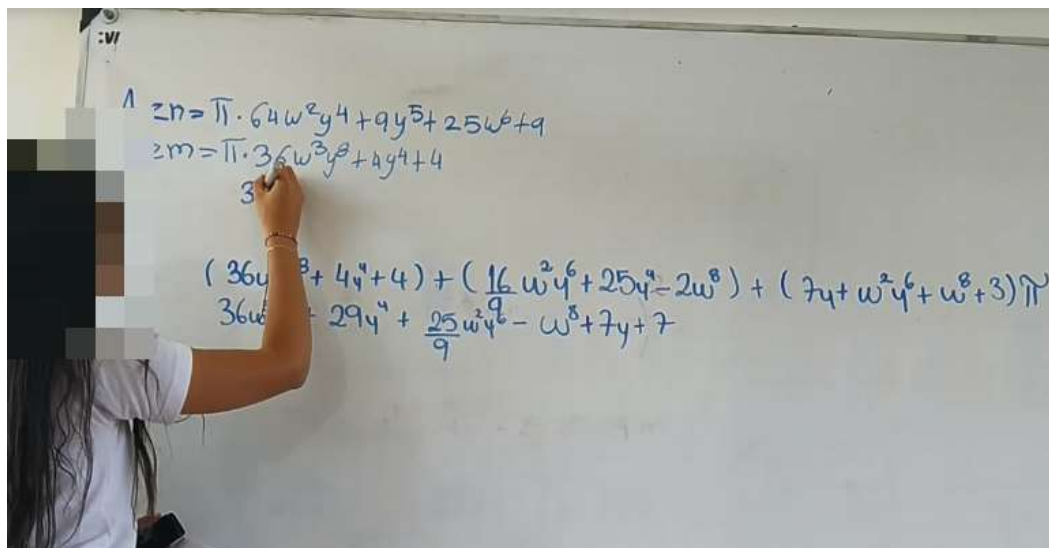 :VI
A
zn = π · 64w²y⁴ + 9y⁵ + 25w⁶ + 9
zm = π · 36w³y⁸ + 4y⁴ + 4
3
(36w ⁸ + 4y⁴ + 4) + (16/9 w²y⁶ + 25y⁴ - 2w⁸) + (7y + w²y⁶ + w⁸ + 3)π
36w + 29y⁴ + 25/9 w²y⁶ - w⁸ + 7y + 7